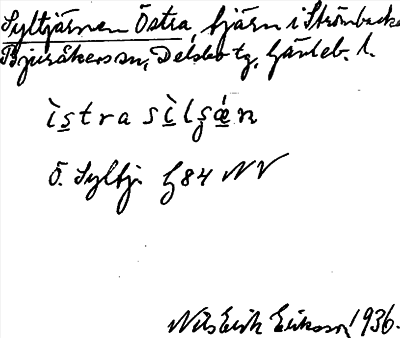 Syltjärnen Östra, tjärn i Strömbacka
Bjuråkers sn, Delsbo tg, Gävleb. l.
ìs̲tra sì̲lşǽ̲n
Ö. Syltj. G84 NV
Nils Erik Eriksson 1936.